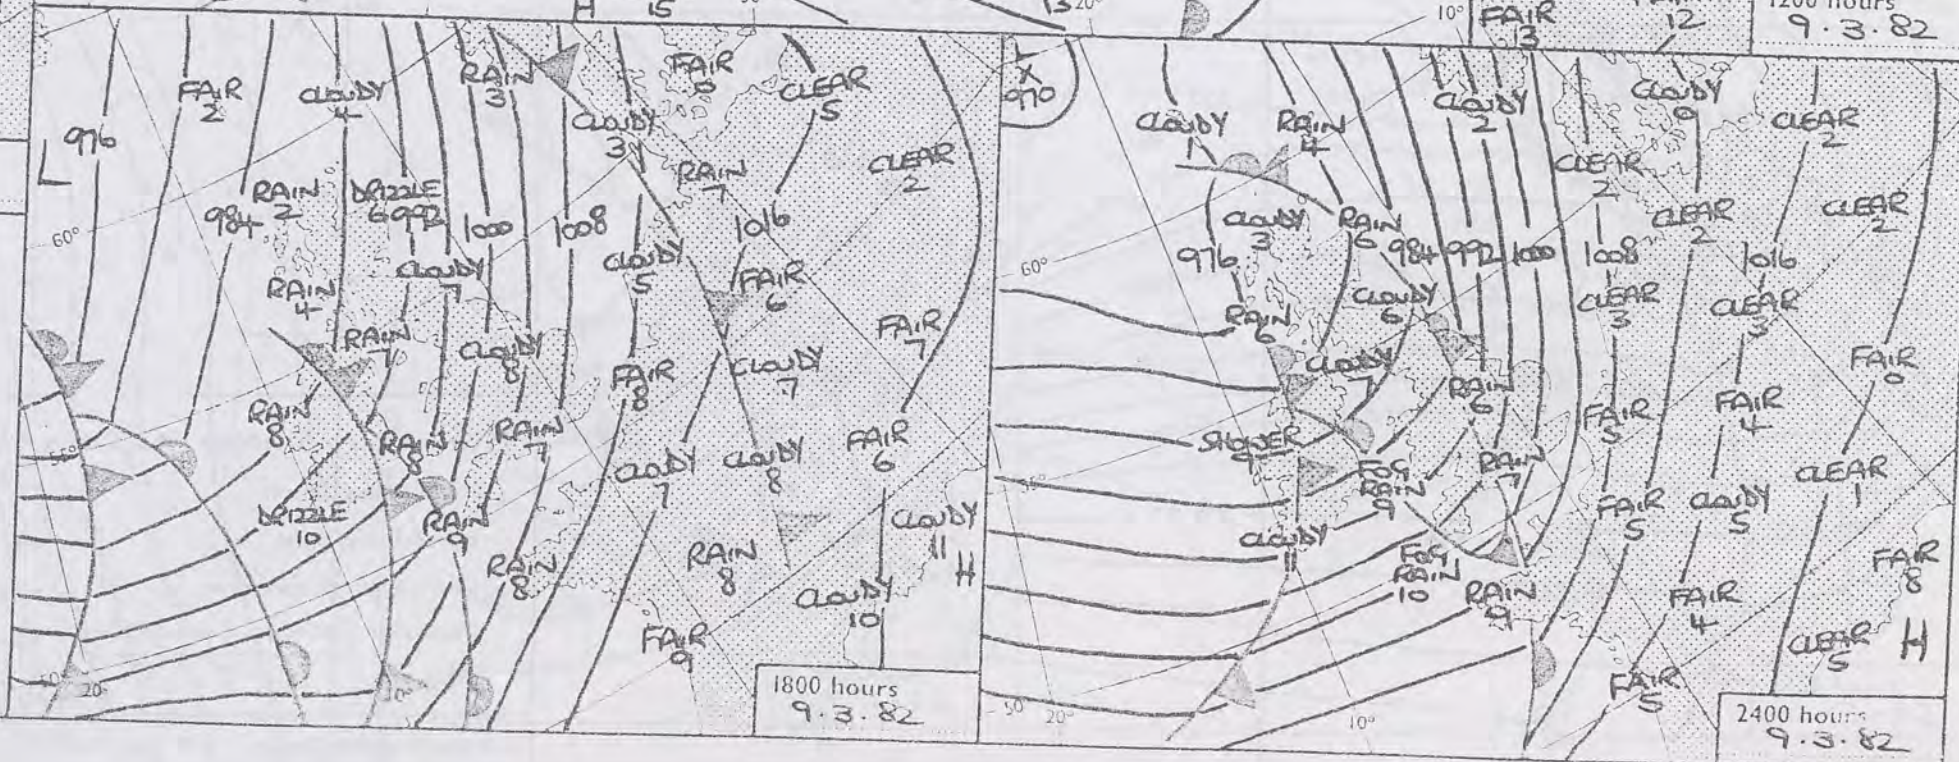 H
15
13
20°
10°
FAIR
13
12
1200 hours
9.3.82
976
L
FAIR
2
CLOUDY
4
RAIN
3
FAIR
6
CLEAR
5
CLOUDY
3
RAIN
7
CLEAR
2
RAIN
2
DRIZZLE
6
984
992
1000
1008
1016
60°
CLOUDY
7
CLOUDY
5
FAIR
6
RAIN
4
RAIN
7
CLOUDY
8
FAIR
7
FAIR
8
CLOUDY
7
RAIN
8
RAIN
8
RAIN
7
CLOUDY
7
CLOUDY
8
FAIR
6
DRIZZLE
10
RAIN
9
RAIN
8
RAIN
8
CLOUDY
11
H
CLOUDY
10
FAIR
9
20°
10°
1800 hours
9.3.82
L
X
970
CLOUDY
1
RAIN
4
CLOUDY
2
CLOUDY
0
CLEAR
2
CLEAR
2
CLOUDY
3
RAIN
6
CLEAR
2
CLEAR
2
976
984
992
1000
1008
1016
60°
RAIN
6
CLOUDY
6
CLEAR
3
CLEAR
3
CLOUDY
7
RAIN
6
FAIR
5
FAIR
4
FAIR
0
SHOWER
9
FOG
RAIN
9
RAIN
7
CLEAR
1
FAIR
5
CLOUDY
5
CLOUDY
11
FOG
RAIN
10
RAIN
9
FAIR
4
FAIR
8
CLEAR
5
H
FAIR
5
50°
20°
10°
2400 hours
9.3.82